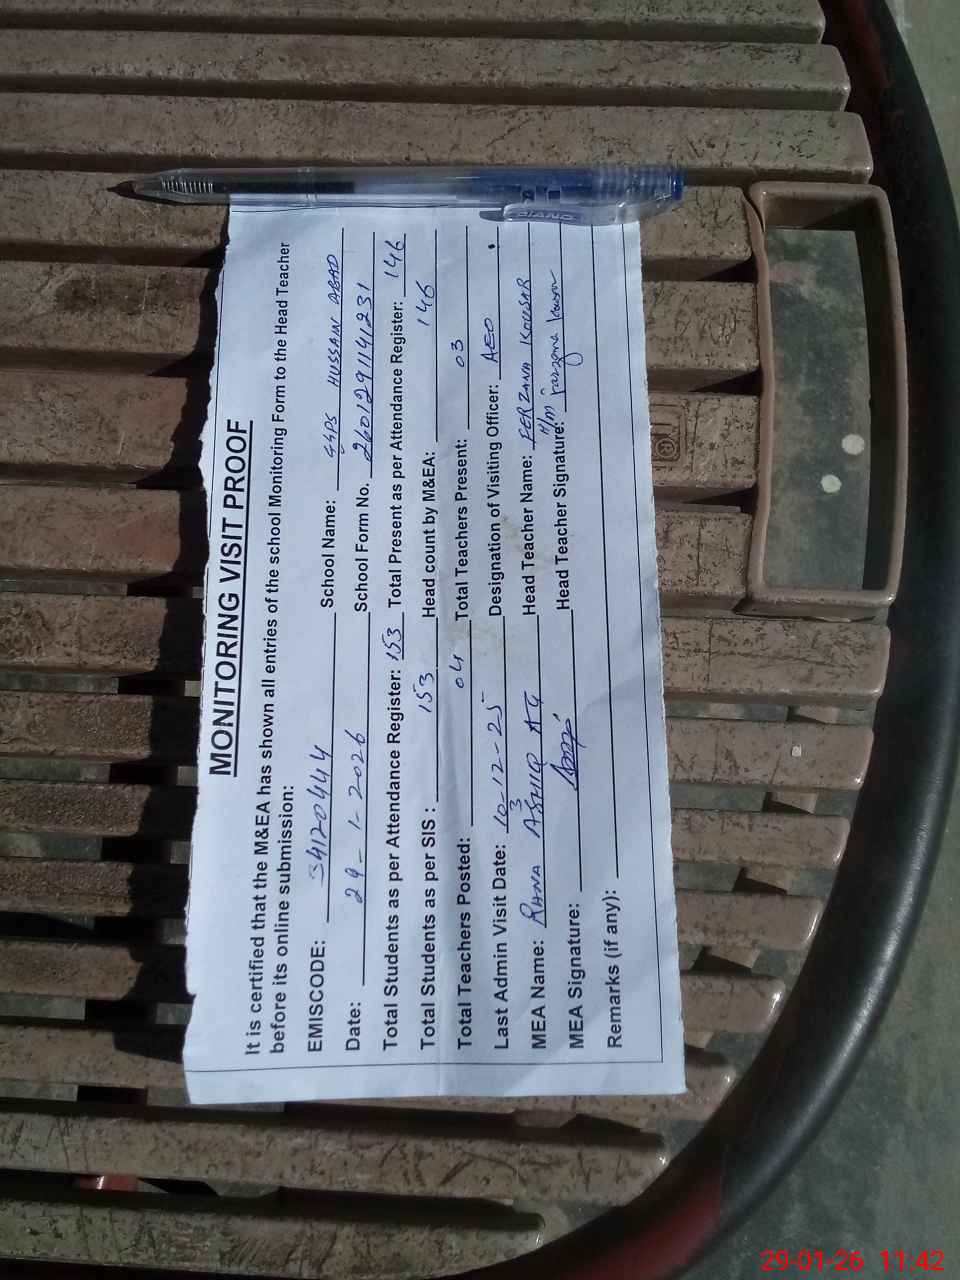 MONITORING VISIT PROOF
It is certified that the M&EA has shown all entries of the school Monitoring Form to the Head Teacher
before its online submission:
EMISCODE: 34120444 School Name: GGPS HUSSAIN ABAD
Date: 29-1-2026 School Form No. 2601291141231
Total Students as per Attendance Register: 153 Total Present as per Attendance Register: 146
Total Students as per SIS : 153 Head count by M&EA: 146
Total Teachers Posted: 04 Total Teachers Present: 03
Last Admin Visit Date: 10-12-25 Designation of Visiting Officer: AEO
MEA Name: RANA ASHIQ Head Teacher Name: FERZANA KOUSAR
MEA Signature: Head Teacher Signature: H/m Farzana Kousar
Remarks (if any):
PIANO
29-01-26 11:42